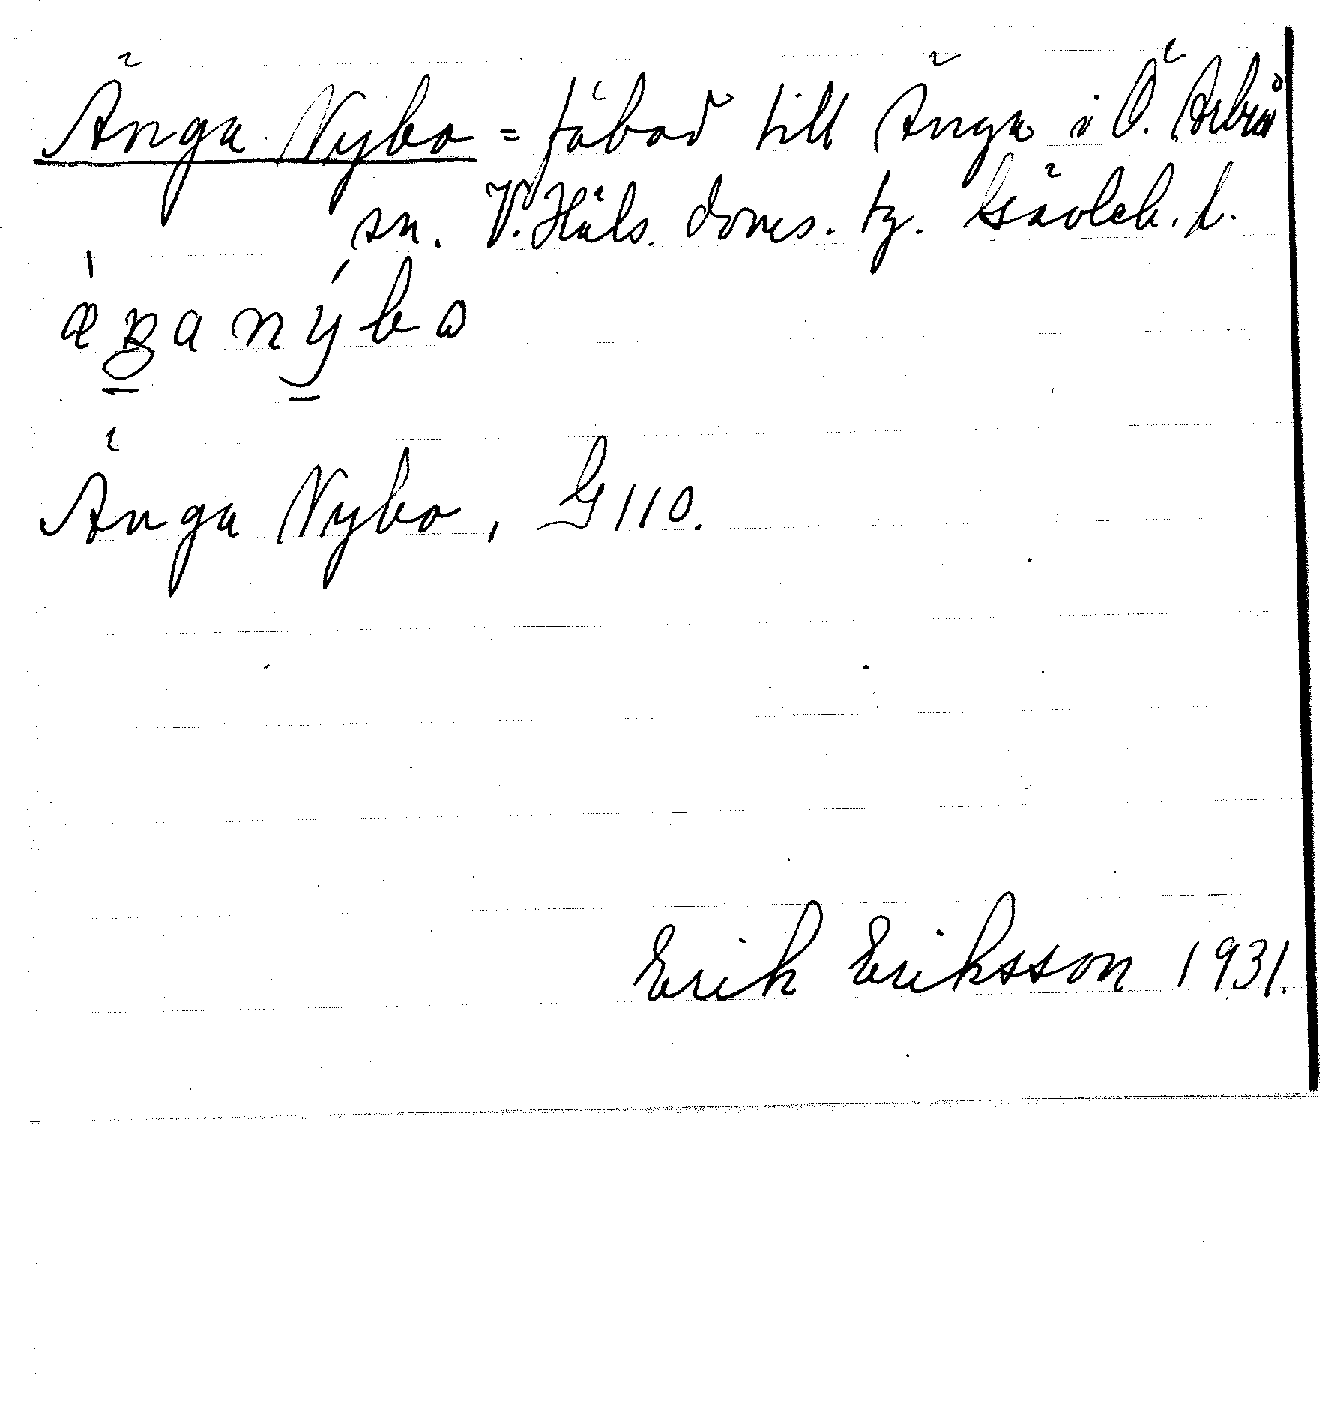 Änga Nybo = fäbod till Änga i Ö. Arbrå
sn. V. Häls. doms. tg. Gävleb. l.
ǽŋa nýbo
Änga Nybo, G 110.
Erik Eriksson 1931.